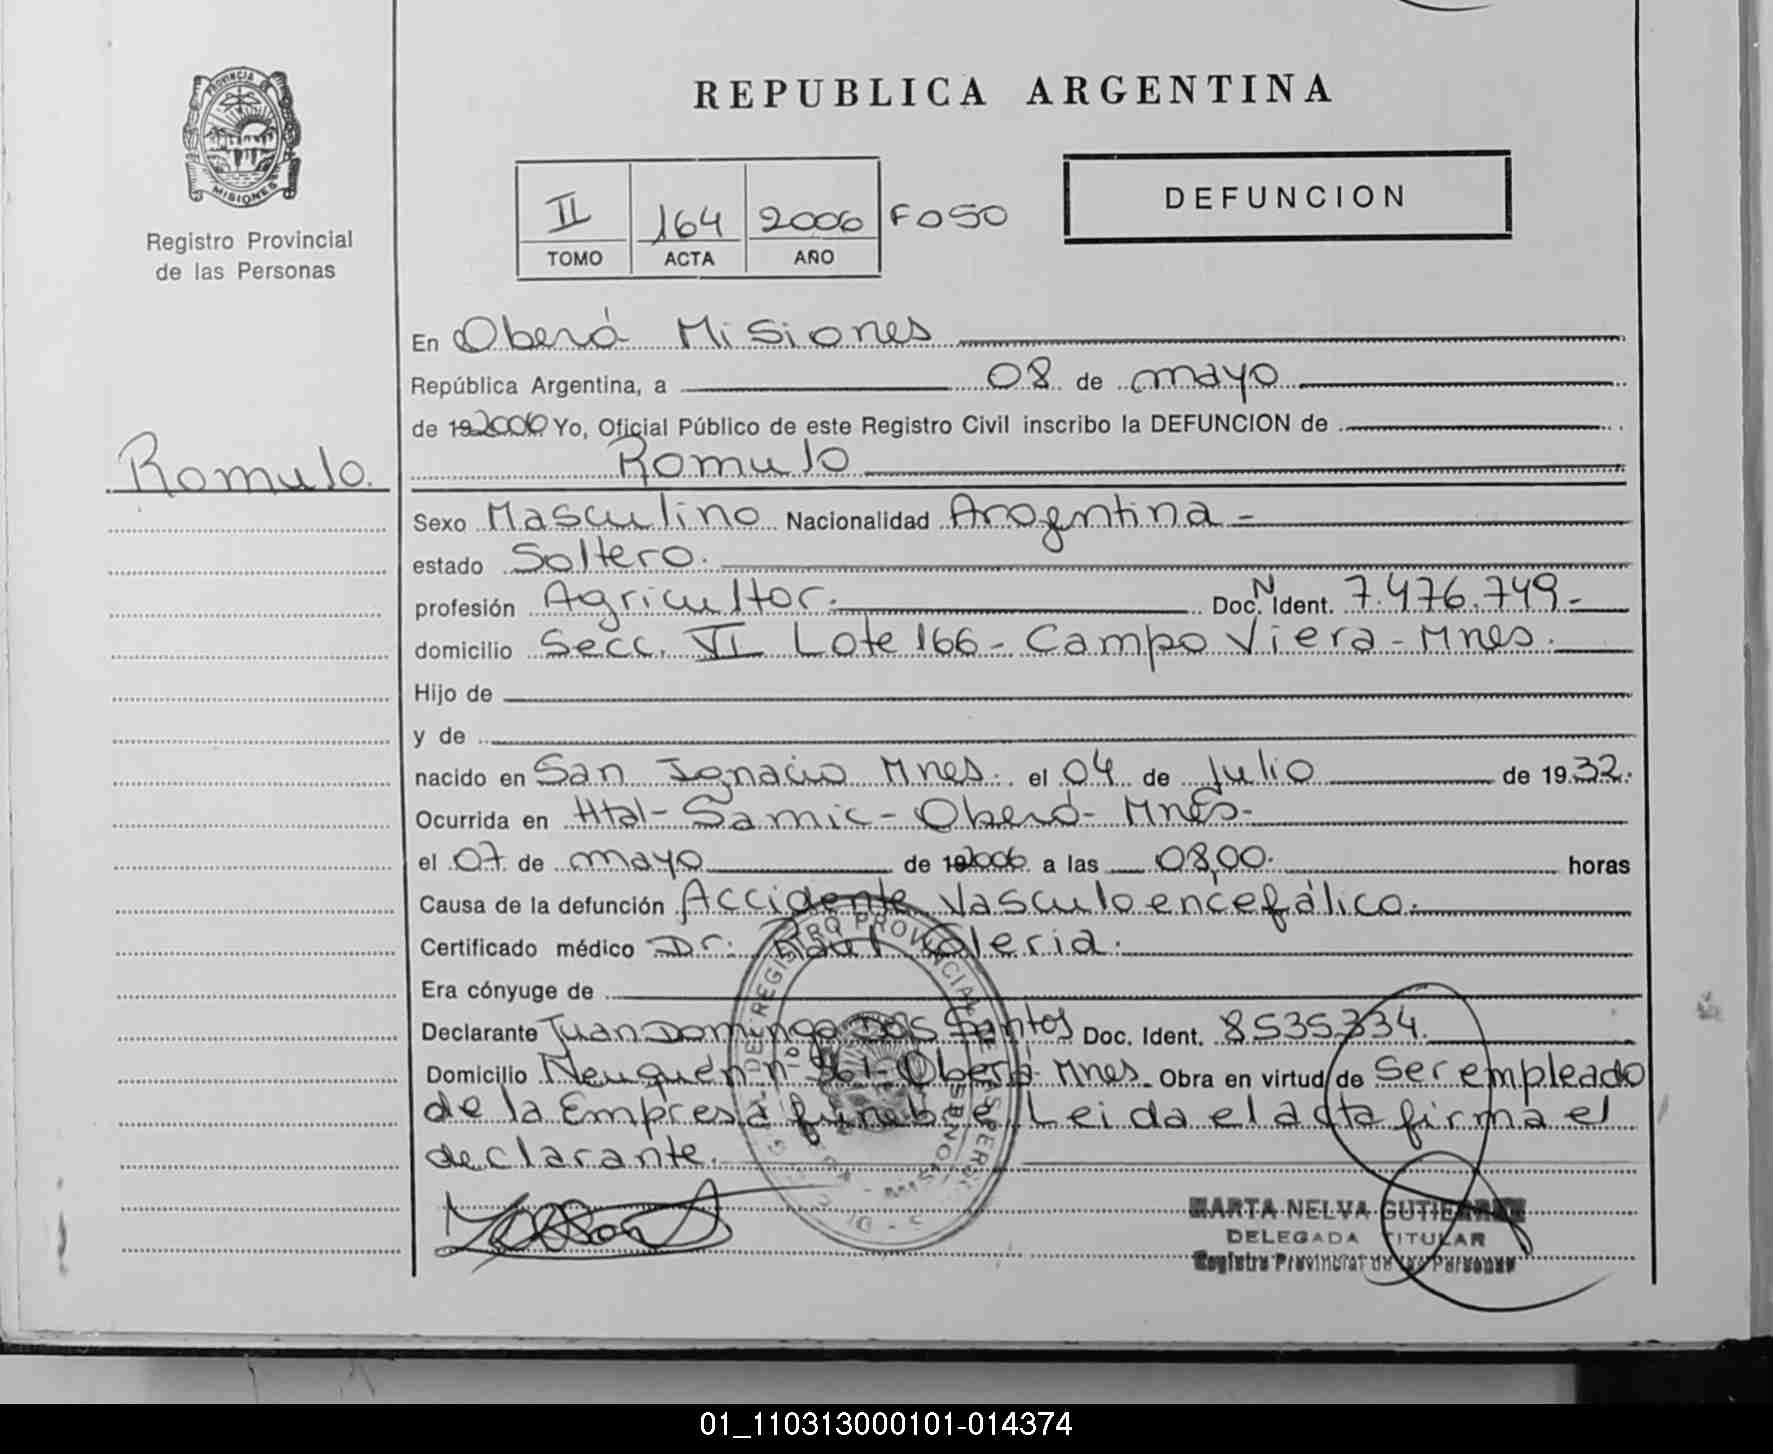 REPUBLICA ARGENTINA
PROVINCIA DE
MISIONES
Registro Provincial
de las Personas
II 164 2006 F050
TOMO ACTA AÑO
DEFUNCION
En Oberá Misiones
República Argentina, a 08 de mayo
de 192006 Yo, Oficial Público de este Registro Civil inscribo la DEFUNCION de
Romulo
Romulo.
Sexo Masculino Nacionalidad Argentina -
estado Soltero.
profesión Agricultor. Doc. N Ident. 7.476.749.-
domicilio Secc. VI Lote 166 - Campo Viera - Mnes.
Hijo de
y de
nacido en San Ignacio Mnes. el 04 de Julio de 1932.
Ocurrida en Htal - Samic - Oberá - Mnes -
el 07 de mayo de 192006 a las 08,00. horas
Causa de la defunción Accidente Vasculoencefálico.
Certificado médico Dr: Raul
Era cónyuge de
Declarante Juan Domingo Dos Santos Doc. Ident. 8535334.
Domicilio Neuquén nº 961 - Oberá - Mnes. Obra en virtud de Ser empleado
de la Empresa fúnebre Leida el acta firma el
declarante.
REGISTRO PROVINCIAL DE LAS PERSONAS
MARTA NELVA GUTIERREZ
DELEGADA TITULAR
Registro Provincial de las Personas
01_110313000101-014374